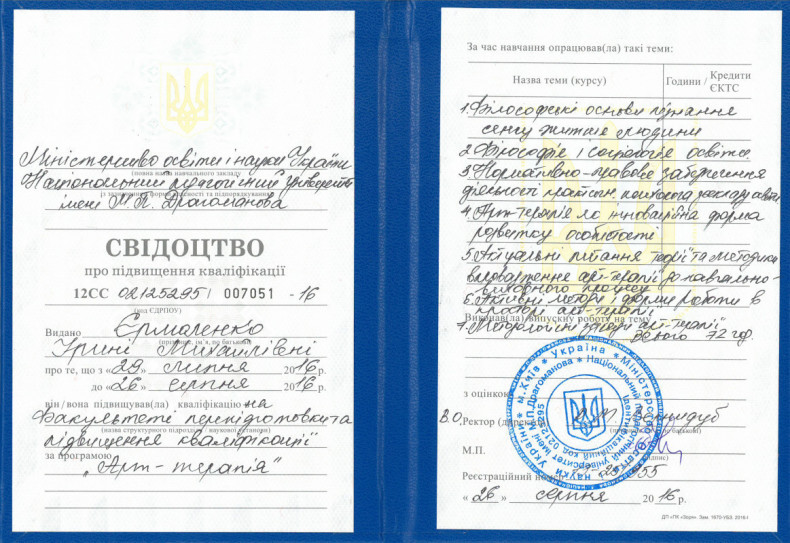 Міністерство освіти і науки України
(повна назва навчального закладу
Національний педагогічний університет
імені М.П. Драгоманова
СВІДОЦТВО
про підвищення кваліфікації
12СС 02125295/ 007051 -16
(код ЄДРПОУ)
Видано Єрмаленко
Ірині Михайлівні
про те, що з «29» липня 2016 р.
до «26» серпня 2016 р.
він / вона підвищував(ла) кваліфікацію на
Факультеті перепідготовки та
(назва структурного підрозділу наукової установи)
підвищення кваліфікації
за програмою
„Арт-терапія"
За час навчання опрацював(ла) такі теми:
Назва теми (курсу) Години / Кредити ЄКТС
1. Філософські основи пізнання
сенсу життя людини
2. Філософія і соціологія освіти.
3. Нормативно-правове забезпечення
діяльності психолога закладу освіти
4. Арт-терапія як інноваційна форма
розвитку особистості
5. Актуальні питання теорії та методики
впровадження арт-терапії до навчально-
виховного процесу
6. Активні методи і форми роботи в
просторі арт-терапії
Виконав(ла) випускну роботу на тему
7. Методологічні засади арт-терапії"
Всього 72 год.
з оцінкою
В.О. Ректор
М.П.
(підпис)
Реєстраційний 55
«26» серпня 2016 р.
Україна * Міністерство освіти і науки України * м. Київ *
Національний педагогічний університет імені М.П. Драгоманова * Ідентифікаційний код 02125295
ДП «ПК «Зоря». Зам. 1870-УБВ. 2016 г.